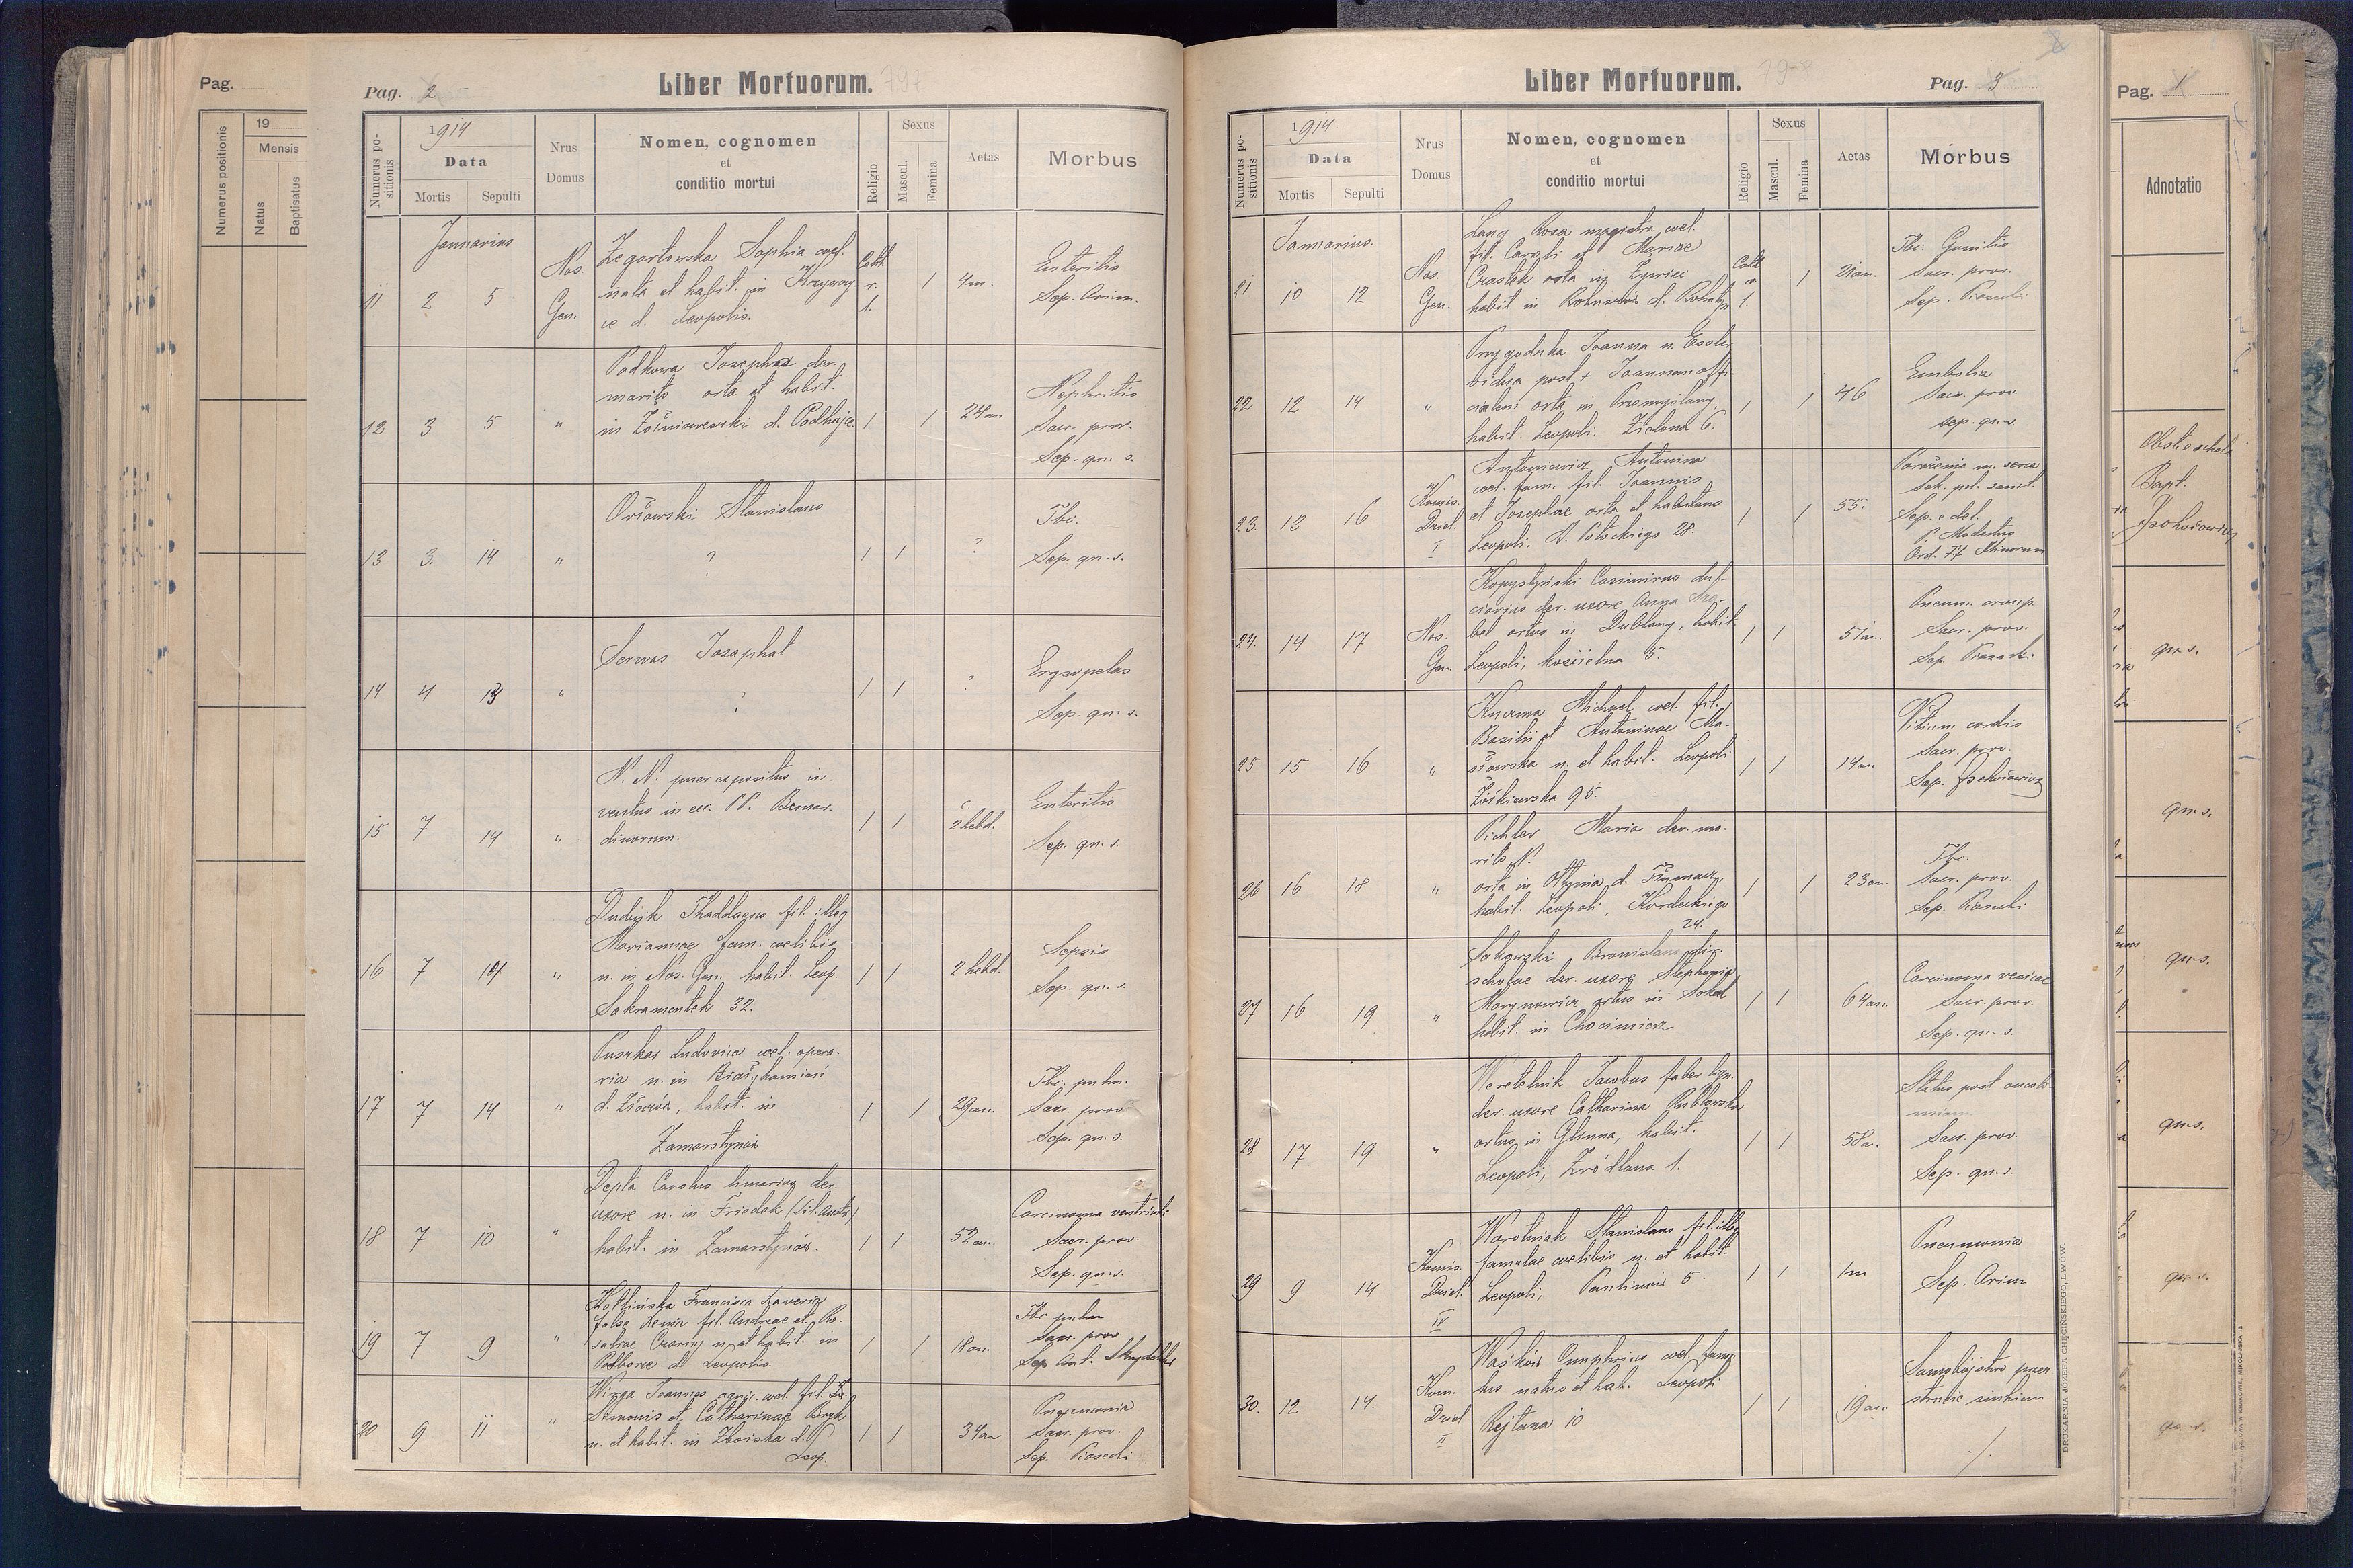 Pag.
19
Mensis
Numerus positionis
Natus
Baptisatus
Pag. 2
Liber Mortuorum. 797
Numerus po-
sitionis
1914
Data
Mortis Sepulti
Nrus
Domus
Nomen, cognomen
et
conditio mortui
Religio
Sexus
Mascul.
Femina
Aetas
Morbus
Januarius
11 2 5 Nos. Gen.
Zegartowska Sophia coel.
nata et habit. in
ie d. Leopolis.
Cath. r. l.
1 4m.
Enteritis
Sep. Arim.
12 3 5 "
Podkowa Josepha der.
marito orta et habit.
in d. Podhajce
1 1 24an.
Nephritis
Sacr. prov.
Sep. qu. s.
13 3. 14 "
Orłowski Stanislaus
?
1 1 ?
Tbc.
Sep. qu. s.
14 4 13 "
Serwas Josaphat
?
1 1 ?
Erysipelas
Sep. qu. s.
15 7 14 "
N. N. puer expositus in-
ventus in ecc. PP. Bernar-
dinorum.
1 1 c. 2 hebd.
Enteritis
Sep. qu. s.
16 7 14 "
Dudzik Thaddaeus fil. illeg
Mariannae fam. coelibis
n. in Nos. Gen. habit. Leop.
Sakramentek 32.
1 1 2 hebd.
Sepsis
Sep. qu. s.
17 7 14 "
Puszkar Ludovica coel. opera-
ria n. in Białykamień
d. Złoczów, habit. in
Zamarstynów
1 1 29an.
Tbc. pulm.
Sacr. prov.
Sep. qu. s.
18 7 10 "
Depta Carolus limarius der.
uxore n. in Friedek (Sil. Austr.)
habit. in Zamarstynów.
1 1 52an.
Carcinoma ventriculi
Sacr. prov.
Sep. qu. s.
19 7 9 "
Francisca Xaveria
false fil. Andreae et Ro-
saliae n. et habit. in
Podborce d. Leopolis.
1 1 18an.
Tbc pulm
Sacr. prov.
Sep. Ant.
20 9 11 "
Wizga Joannes agric. coel. fil.
Simonis et Catharinae Bryk
n. et habit. in Zboiska d.
Leop.
1 1 34an
Pneumonia
Sacr. prov.
Sep. Piasecki
Liber Mortuorum. 798
Pag. 3
Numerus po-
sitionis
1914.
Data
Mortis Sepulti
Nrus
Domus
Nomen, cognomen
et
conditio mortui
Religio
Sexus
Mascul.
Femina
Aetas
Morbus
Januarius.
21 10 12 Nos. Gen.
Lang Rosa magistra coel.
fil. Caroli et Mariae
orta in Żywiec
habit in d. Rohatyn
Cath r. l.
1 21an.
Tbc. Genitis
Sacr. prov.
Sep. Piasecki
22 12 14 "
Przygodzka Joanna n. Essler
vidua post + Joannem offi-
cialem orta in Przemyślany,
habit. Leopoli. Zielona 6.
1 1 46
Embolia
Sacr. prov.
sep. qu. s.
23. 13 16 Komis. Dziel. I
Antoniewicz Antonina
coel. fam. fil. Joannis
et Josephae orta et habitans
Leopoli, A. Potockiego 28.
1 1 55.
Porażenie m. serca
Sek. pol. sanit.
Sep. e del.
P. Modestus
Ord. Ff Minorum
24. 14 17 Nos. Gen.
Kopystyński Casimirus dul-
ciarius der. uxore Anna
bel ortus in Dublany, habit
Leopoli, Kościelna 5.
1 1 51an.
Pneum. croup.
Sacr. prov.
Sep. Piasecki
25 15 16 "
Kuczma Michael coel. fil.
Basilii et Antoninae Ma-
słowska n. et habit. Leopoli
Żółkiewska 95.
1 1 14an.
Vitium cordis
Sacr. prov.
Sep.
26 16 18 "
Pichler Maria der. ma-
rito N.
orta in Ottynia d. Tłumacz,
habit. Leopoli, Kordeckiego
24.
1 1 23an.
Tbc.
Sacr. prov.
Sep. Piasecki
27 16 19 "
Sakowski Bronislaus dir.
scholae der. uxore Stephania
Marynowicz ortus in Sokal
habit. in Chocimierz
1 1 64an.
Carcinoma vesicae
Sacr. prov.
Sep. qu. s.
28 17 19 "
Weretelnik Jacobus faber lign.
der. uxore Catharina
ortus in Glinna, habit.
Leopoli, Źródlana 1.
1 1 58a.
Status post
Sacr. prov.
Sep. qu. s.
29 9 14 Komis. Dziel. IV
Worotniak Stanislaus fil. illeg
famulae coelibis n. et habit.
Leopoli, Paulinów 5.
1 1 1m
Pneumonia
Sep. Arim
30. 12 14. Kom. Dziel II
Waśków Onuphrius coel. famu-
lus natus et hab. Leopoli
Rejtana 10
1 1 19an.
Samobójstwo przez
·/.
DRUKARNIA JÓZEFA CHĘCIŃSKIEGO, LWÓW.
Pag. 1
Adnotatio
Bapt.
qu. s.
qu. s.
qu. s.
qu. s.
qu. s.
qu. s.